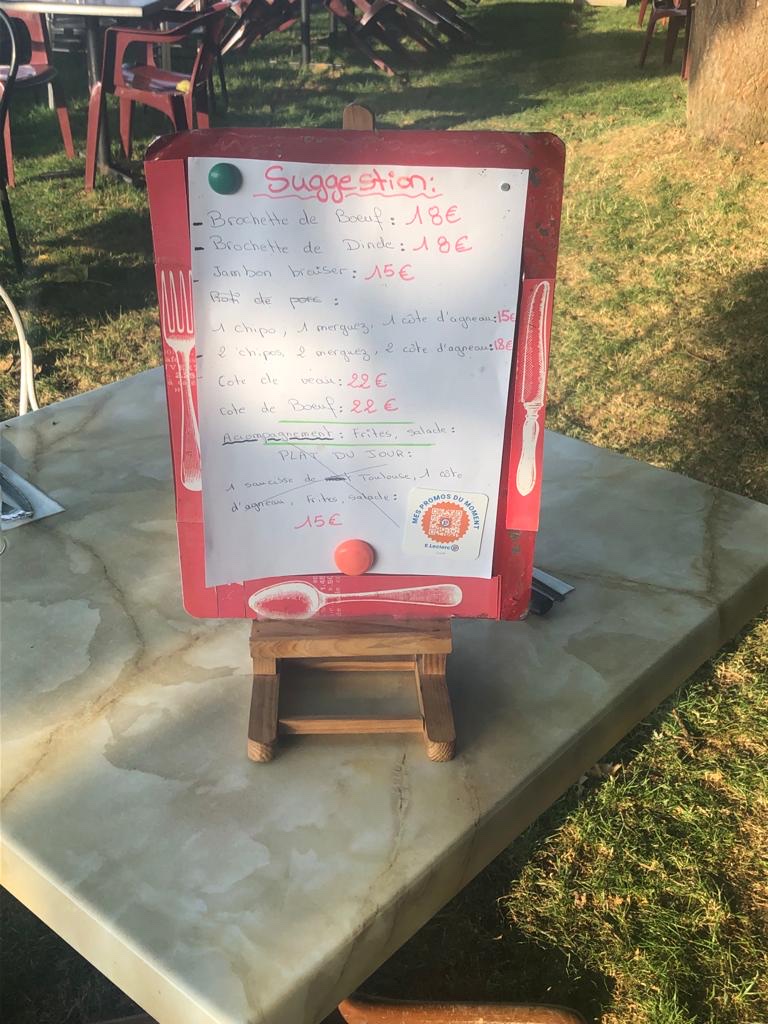 Suggestion:
- Brochette de Boeuf: 18€
- Brochette de Dinde: 18€
Jambon braiser: 15€
Roti de porc :
1 chipo, 1 merguez, 1 côte d'agneau: 15€
2 chipos, 2 merguez, 2 côte d'agneau: 18€
Cote de veau: 22€
cote de Boeuf: 22€
Accompagnement: Frites, salade:
PLAT DU JOUR:
1 saucisse de Toulouse, 1 côte
d'agneau, Frites, salade:
15€
MES PROMOS DU MOMENT
E.Leclerc